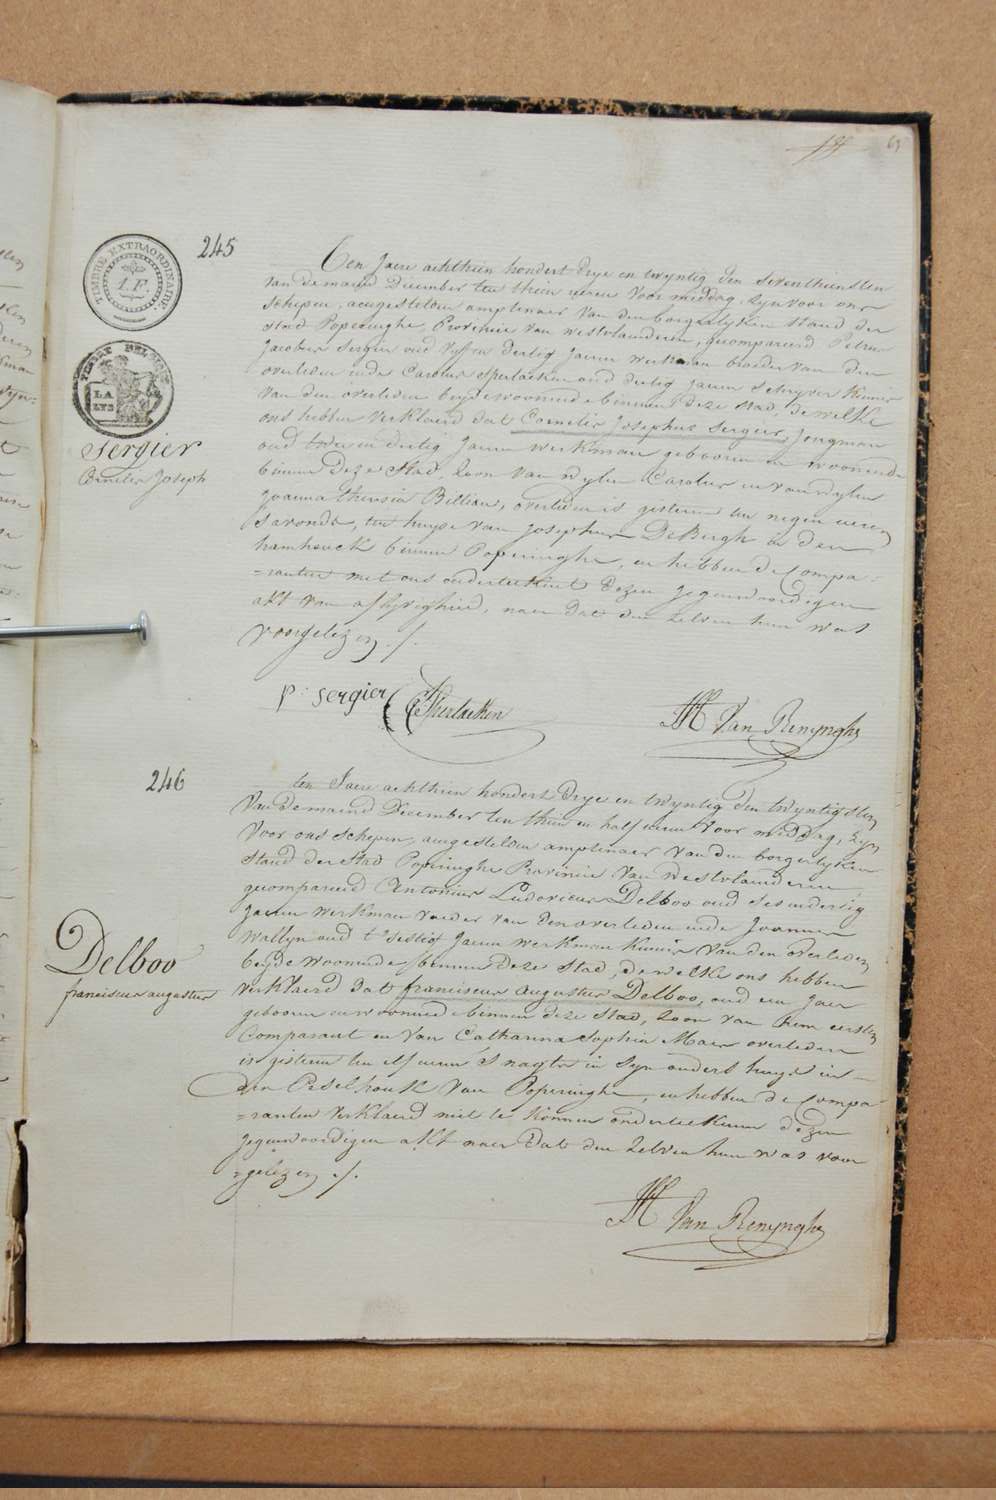 63
TIMBRE EXTRAORDINAIRE.
1.F.
LA
LYS
245
Sergier
Cornelis Joseph
Ten Jaere achthien hondert drye en twyntig den seventhiensten
van de maend December ten thien ueren voor middag, zyn voor ons
schepen, aengestelden amptenaer van den borgerlyken stand der
stad Poperinghe, Provincie van Westvlaenderen, gecompareerd Petrus
Jacobus Sergier oud vyf en dertig Jaeren werkman broeder van den
overleden ende Carolus Sperlaeken oud dertig Jaeren schryver kennis
van den overleden beyde woonende binnen deze stad, dewelke
ons hebben verklaerd dat Cornelis Josephus Sergier, Jongman
oud twee en dertig Jaeren werkman gebooren en woonende
binnen deze stad, zoon van wylen Carolus en van wylen
Joanna Theresia Billiau, overleden is gisteren ten negen ueren
s'avonds, ten huyse van Josephus DeBergh in den
hamhouck binnen Poperinghe, en hebben de Compa=
=ranten met ons onderteekent dezen Jegenwoordigen
akt van aflyvigheid, naer dat den zelven hun was
voorgelezen ./.
P: Sergier
C Sperlaeken
H Van Renynghe
246
Delboo
franciscus augustus
ten Jaere achthien hondert drye en twyntig den twyntigsten
van de maend December ten thien en half ueren voor middag, zyn
voor ons schepen, aengestelden amptenaer van den borgerlyken
stand der stad Poperinghe Provincie van Westvlaenderen,
gecompareerd Antonius Ludovicus Delboo oud ses en dertig
Jaeren werkman vader van den overleden ende Joannes
Wallyn oud t'sestig Jaeren werkman kennis van den overleden
beyde woonende binnen deze stad, dewelke ons hebben
verklaerd dat franciscus augustus Delboo, oud een Jaer
gebooren en woonende binnen deze stad, zoon van hem eersten
Comparant en van Catharina Sophia Maes overleden
is gisteren ten elf ueren s'nagts in syn ouders huyse in
den Peselhouck van Poperinghe, en hebben de Compa
=ranten verklaerd niet te konnen onderteekenen dezen
Jegenwoordigen akt naer dat den zelven hun was voor
=gelezen ./.
H Van Renynghe